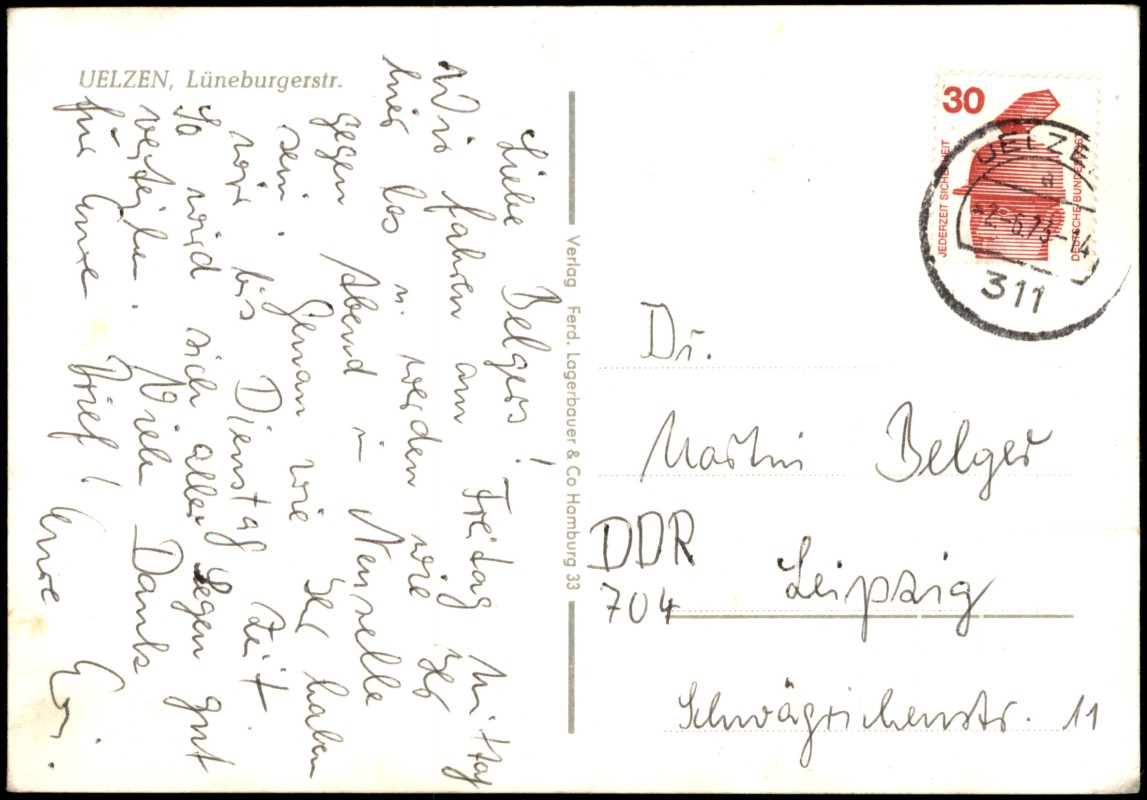 UELZEN, Lüneburgerstr.
Liebe Belgers!
Wir fahren am Freitag Mittag
hier los u. werden wie
gegen Abend in
sein. Genau wie haben
wir bis Dienstag Zeit.
So wird sich alles Legen gut
verteilen. Vielen Dank
für Eure Brief! Eure
Verlag Ferd. Lagerbauer & Co Hamburg 33
30
JEDERZEIT SICHERHEIT
DEUTSCHE BUNDESPOST
UELZEN
a
-2.-6.73-
311
Dr.
Martin Belger
DDR
704 Leipzig
Schwägrichenstr. 11